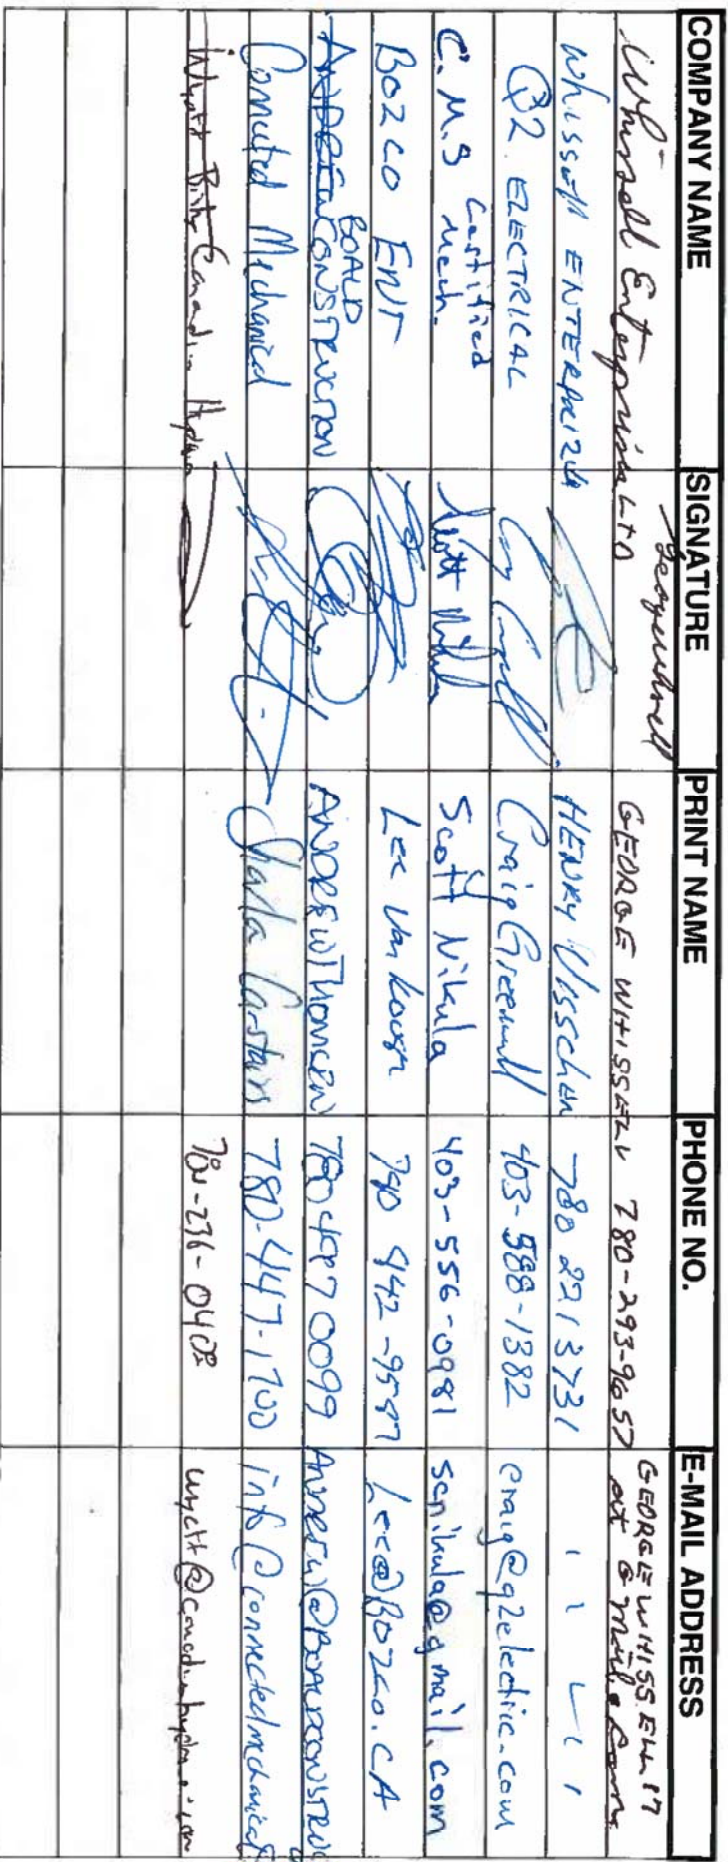 COMPANY NAME SIGNATURE PRINT NAME PHONE NO. E-MAIL ADDRESS
Whissell Enterprises LTD GEORGE WHISSELL 780-293-9657 GEORGE WHISSELL 17
at G mail . com
Whissell ENTERPRIZES HENRY Visscher 780 221 3731 " "
Q2 ELECTRICAL Craig Greenwell 403-588-1382 craig@q2electric.com
C.M.S Certified
Mech. Scott Nikula 403-556-0981 scnikula@gmail.com
BOZCO ENT Lee Van 780 942-9597 Lee@BOZCO.CA
BOALD
CONSTRUCTION ANDREW THOMSEN 780 487 0099 ANDREW@BOALDCONSTRUC
Connected Mechanical Sharla Carstairs 780-447-1700 info@connectedmechanical
Wyatt Canadian 780-236-0408